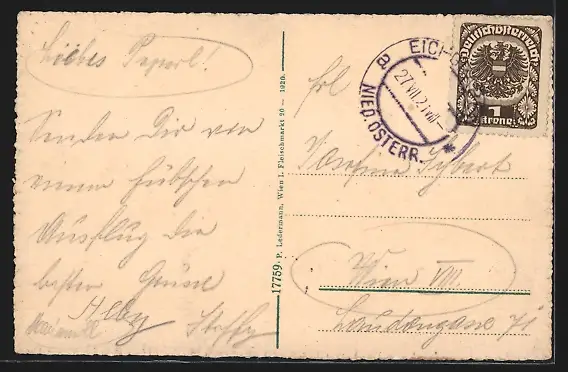 Liebes Peperl!
Senden Dir von
einem hübschen
Ausflug die
besten Grüsse
Steffy
17759 P. Ledermann, Wien I. Fleischmarkt 20 — 1920.
EICH
a
27.VII.21
NIED.ÖSTERR.
*
Deutschösterreich
1
Krone
Frl
Josefine
Wien VIII.
Laudongasse 71